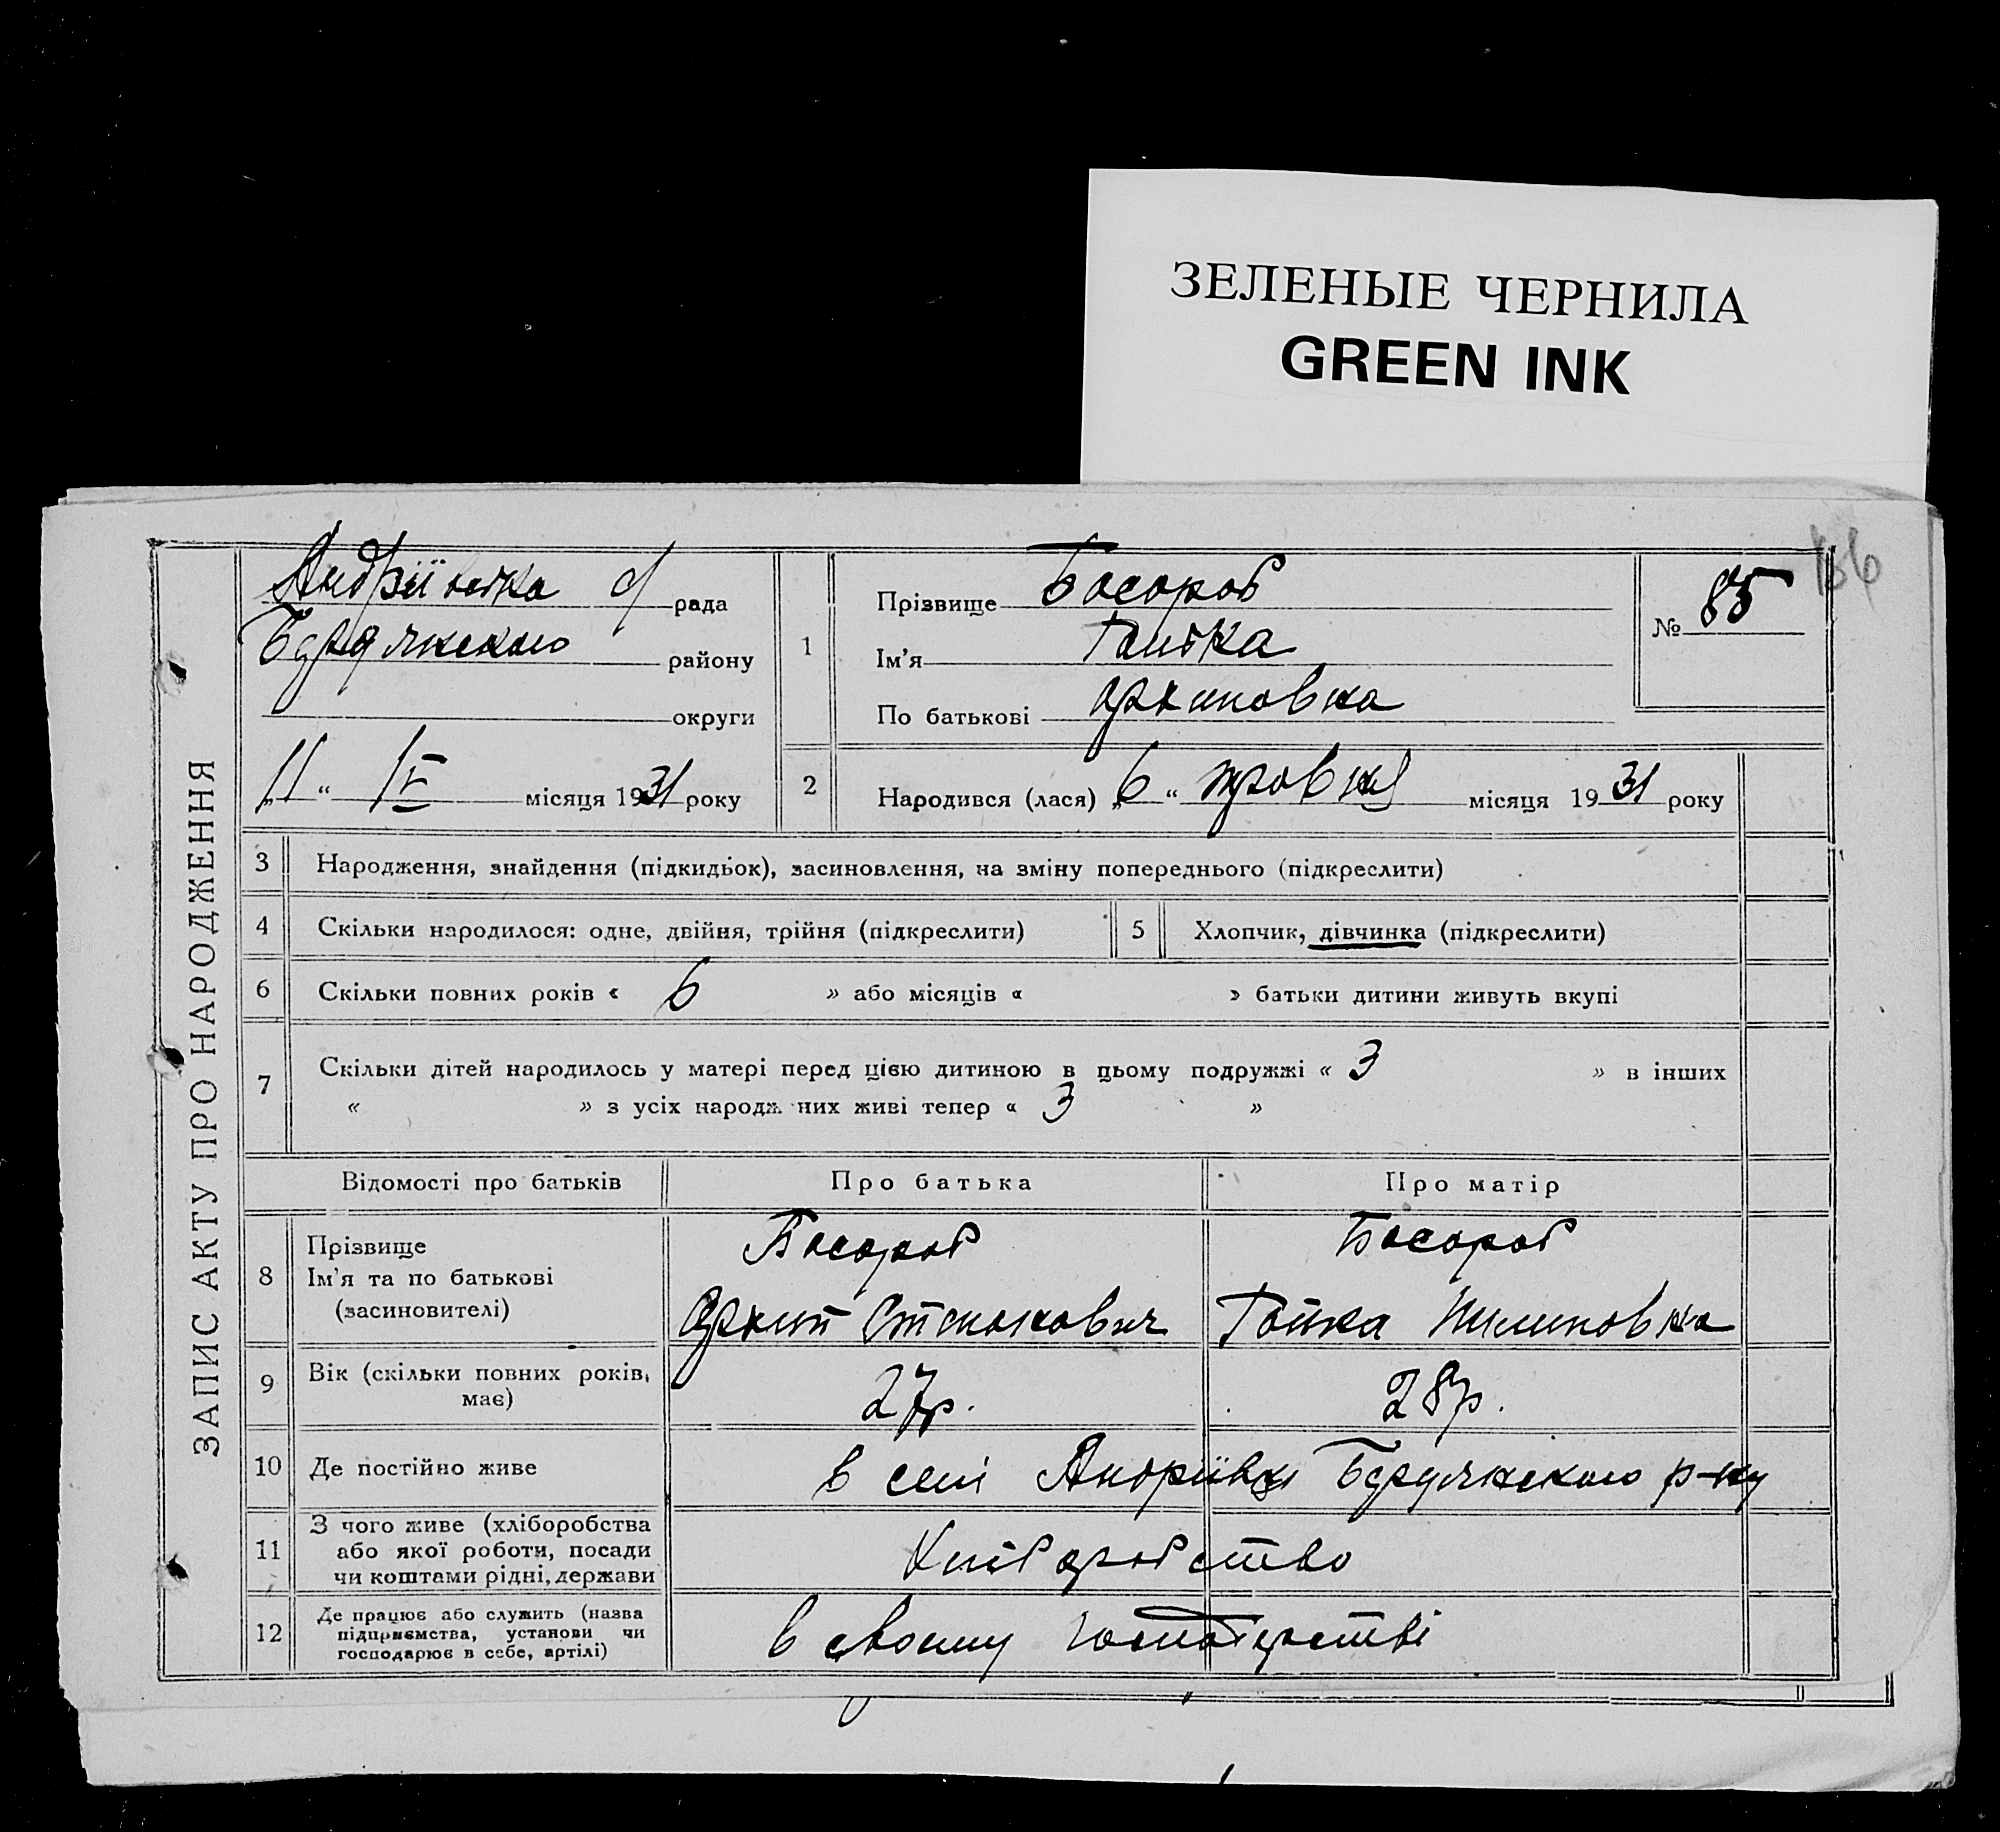 ЗЕЛЕНЫЕ ЧЕРНИЛА
GREEN INK
166
ЗАПИС АКТУ ПРО НАРОДЖЕННЯ
Андріївська с/рада
району
округи
„11“ IV місяця 1931 року
1
Прізвище Босоров
Ім'я
По батькові Архиповна
№ 85
2
Народився (лася) „6“ травня місяця 1931 року
3 Народження, знайдення (підкидьок), засиновлення, на зміну попереднього (підкреслити)
4 Скільки народилося: одне, двійня, трійня (підкреслити)
5 Хлопчик, дівчинка (підкреслити)
6 Скільки повних років « 6 » або місяців « » батьки дитини живуть вкупі
7 Скільки дітей народилось у матері перед цією дитиною в цьому подружжі « 3 » в інших
« » з усіх народж них живі тепер « 3 »
Відомості про батьків Про батька Про матір
8 Прізвище
Ім'я та по батькові
(засиновителі)
Босоров
Архип Степанович
Босоров
Пилиповна
9 Вік (скільки повних років, має) 27р. 28р.
10 Де постійно живе в селі Андріївці р-ну
11 З чого живе (хліборобства
або якої роботи, посади
чи коштами рідні, держави
Хліборобство
12 Де працює або служить (назва
підприємства, установи чи
господарює в себе, артілі)
в своєму господарстві